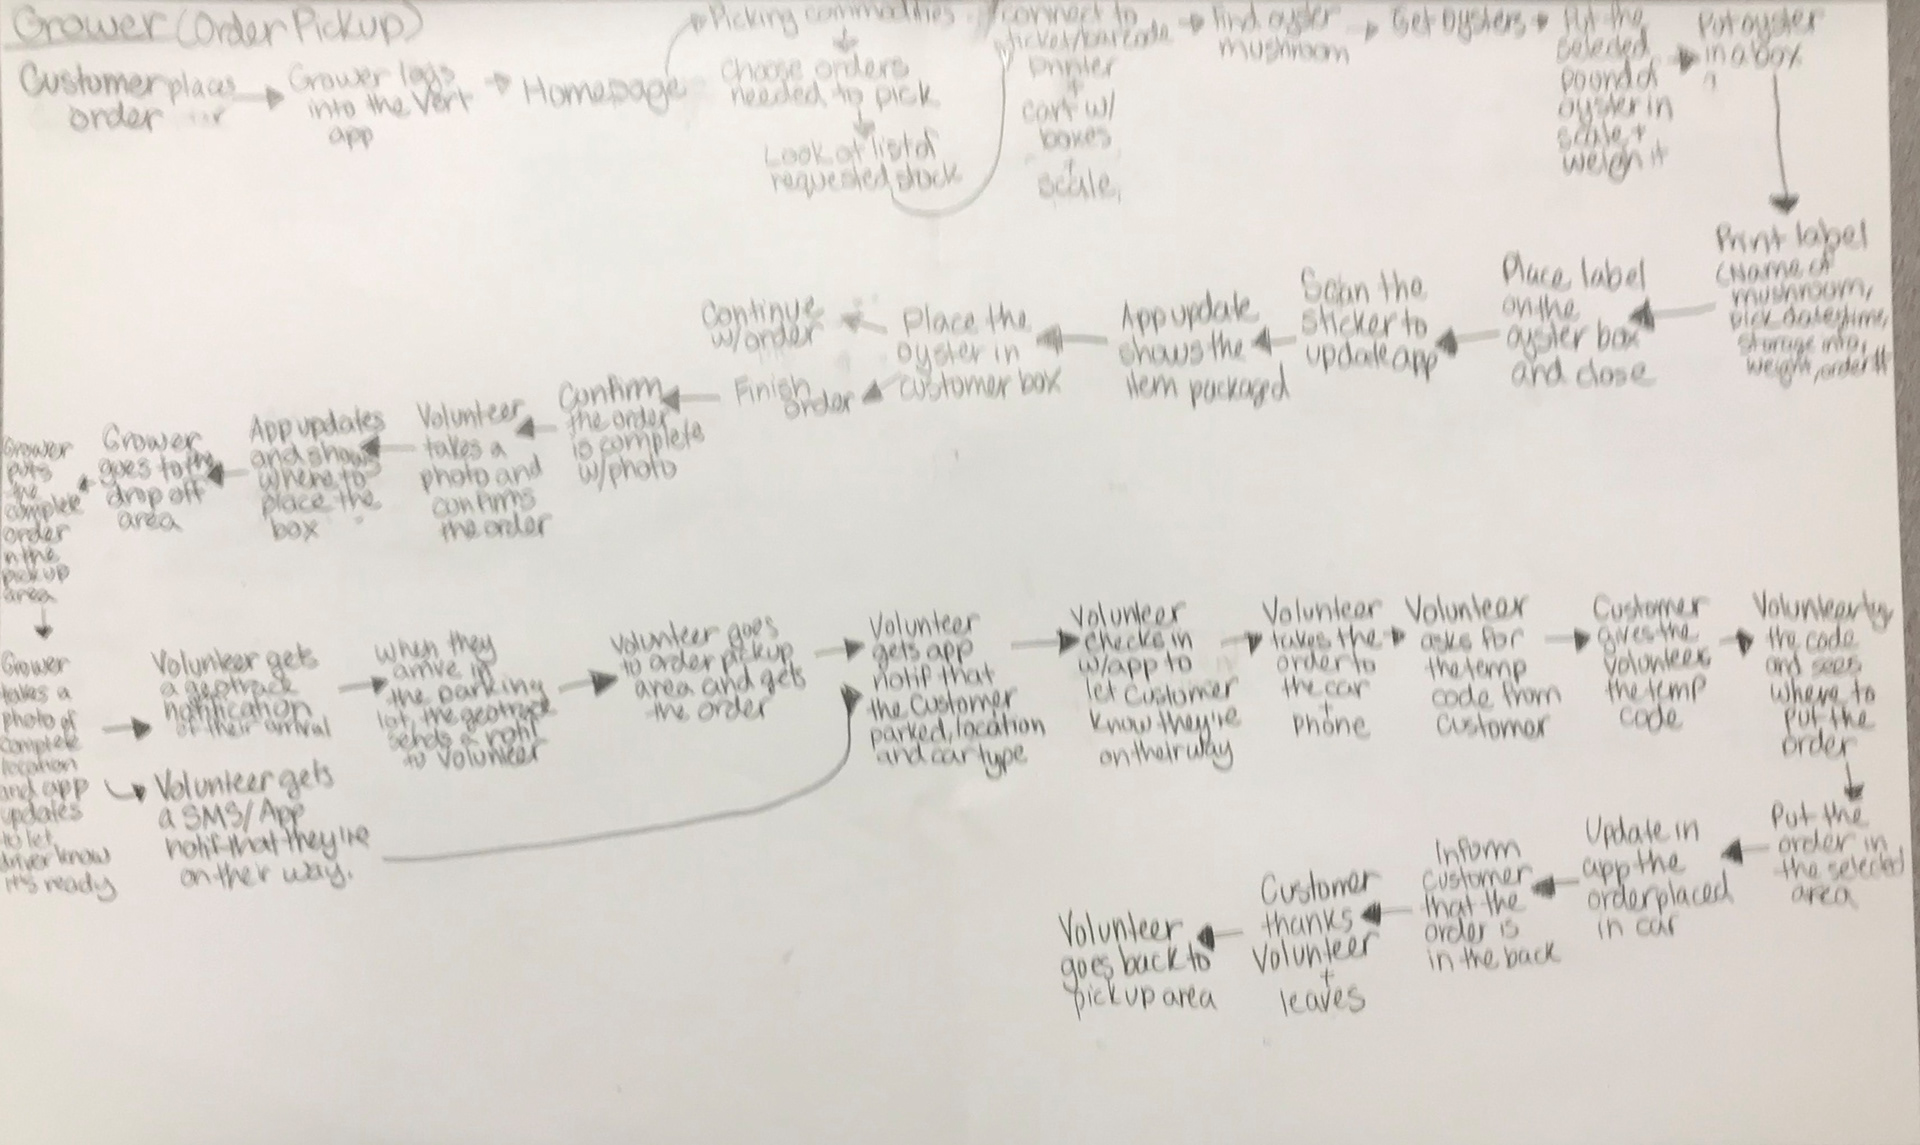 Grower (Order Pickup)
Customer places
order
Grower logs
into the Vert
app
Homepage
Picking commodities
Choose orders
needed to pick
Look at list of
requested stock
connect to
ticket/barcode
printer
+
cart w/
boxes
+
scale
Find oyster
mushroom
Get oysters
Put the
selected
pound of
oyster in
scale +
weigh it
Put oyster
in a box
Print label
(Name of
mushroom,
pick date/time,
storage info,
weight, order #
Place label
on the
oyster box
and close
Scan the
sticker to
update app
App update
shows the
item packaged
Place the
oyster in
customer box
Continue
w/order
Finish
order
Confirm
the order
is complete
w/photo
Volunteer
takes a
photo and
confirms
the order
App updates
and shows
where to
place the
box
Grower
goes to the
drop off
area
Grower
puts
the
complete
order
in the
pickup
area
Grower
takes a
photo of
complete
location
and app
updates
to let
driver know
it's ready
Volunteer gets
a geotrack
notification
of their arrival
Volunteer gets
a SMS/App
notif that they're
on their way.
when they
arrive in
the parking
lot, the geotrack
sends a notif
to volunteer
Volunteer goes
to order pickup
area and gets
the order
Volunteer
gets app
notif that
the customer
parked, location
and car type
Volunteer
checks in
w/app to
let customer
know they're
on their way
Volunteer
takes the
order to
the car
+
phone
Volunteer
asks for
the temp
code from
customer
Customer
gives the
volunteer
the temp
code
Volunteer
the code
and sees
where to
put the
order
Put the
order in
the selected
area
Update in
app the
order placed
in car
Inform
customer
that the
order is
in the back
Customer
thanks
volunteer
+
leaves
Volunteer
goes back to
pickup area